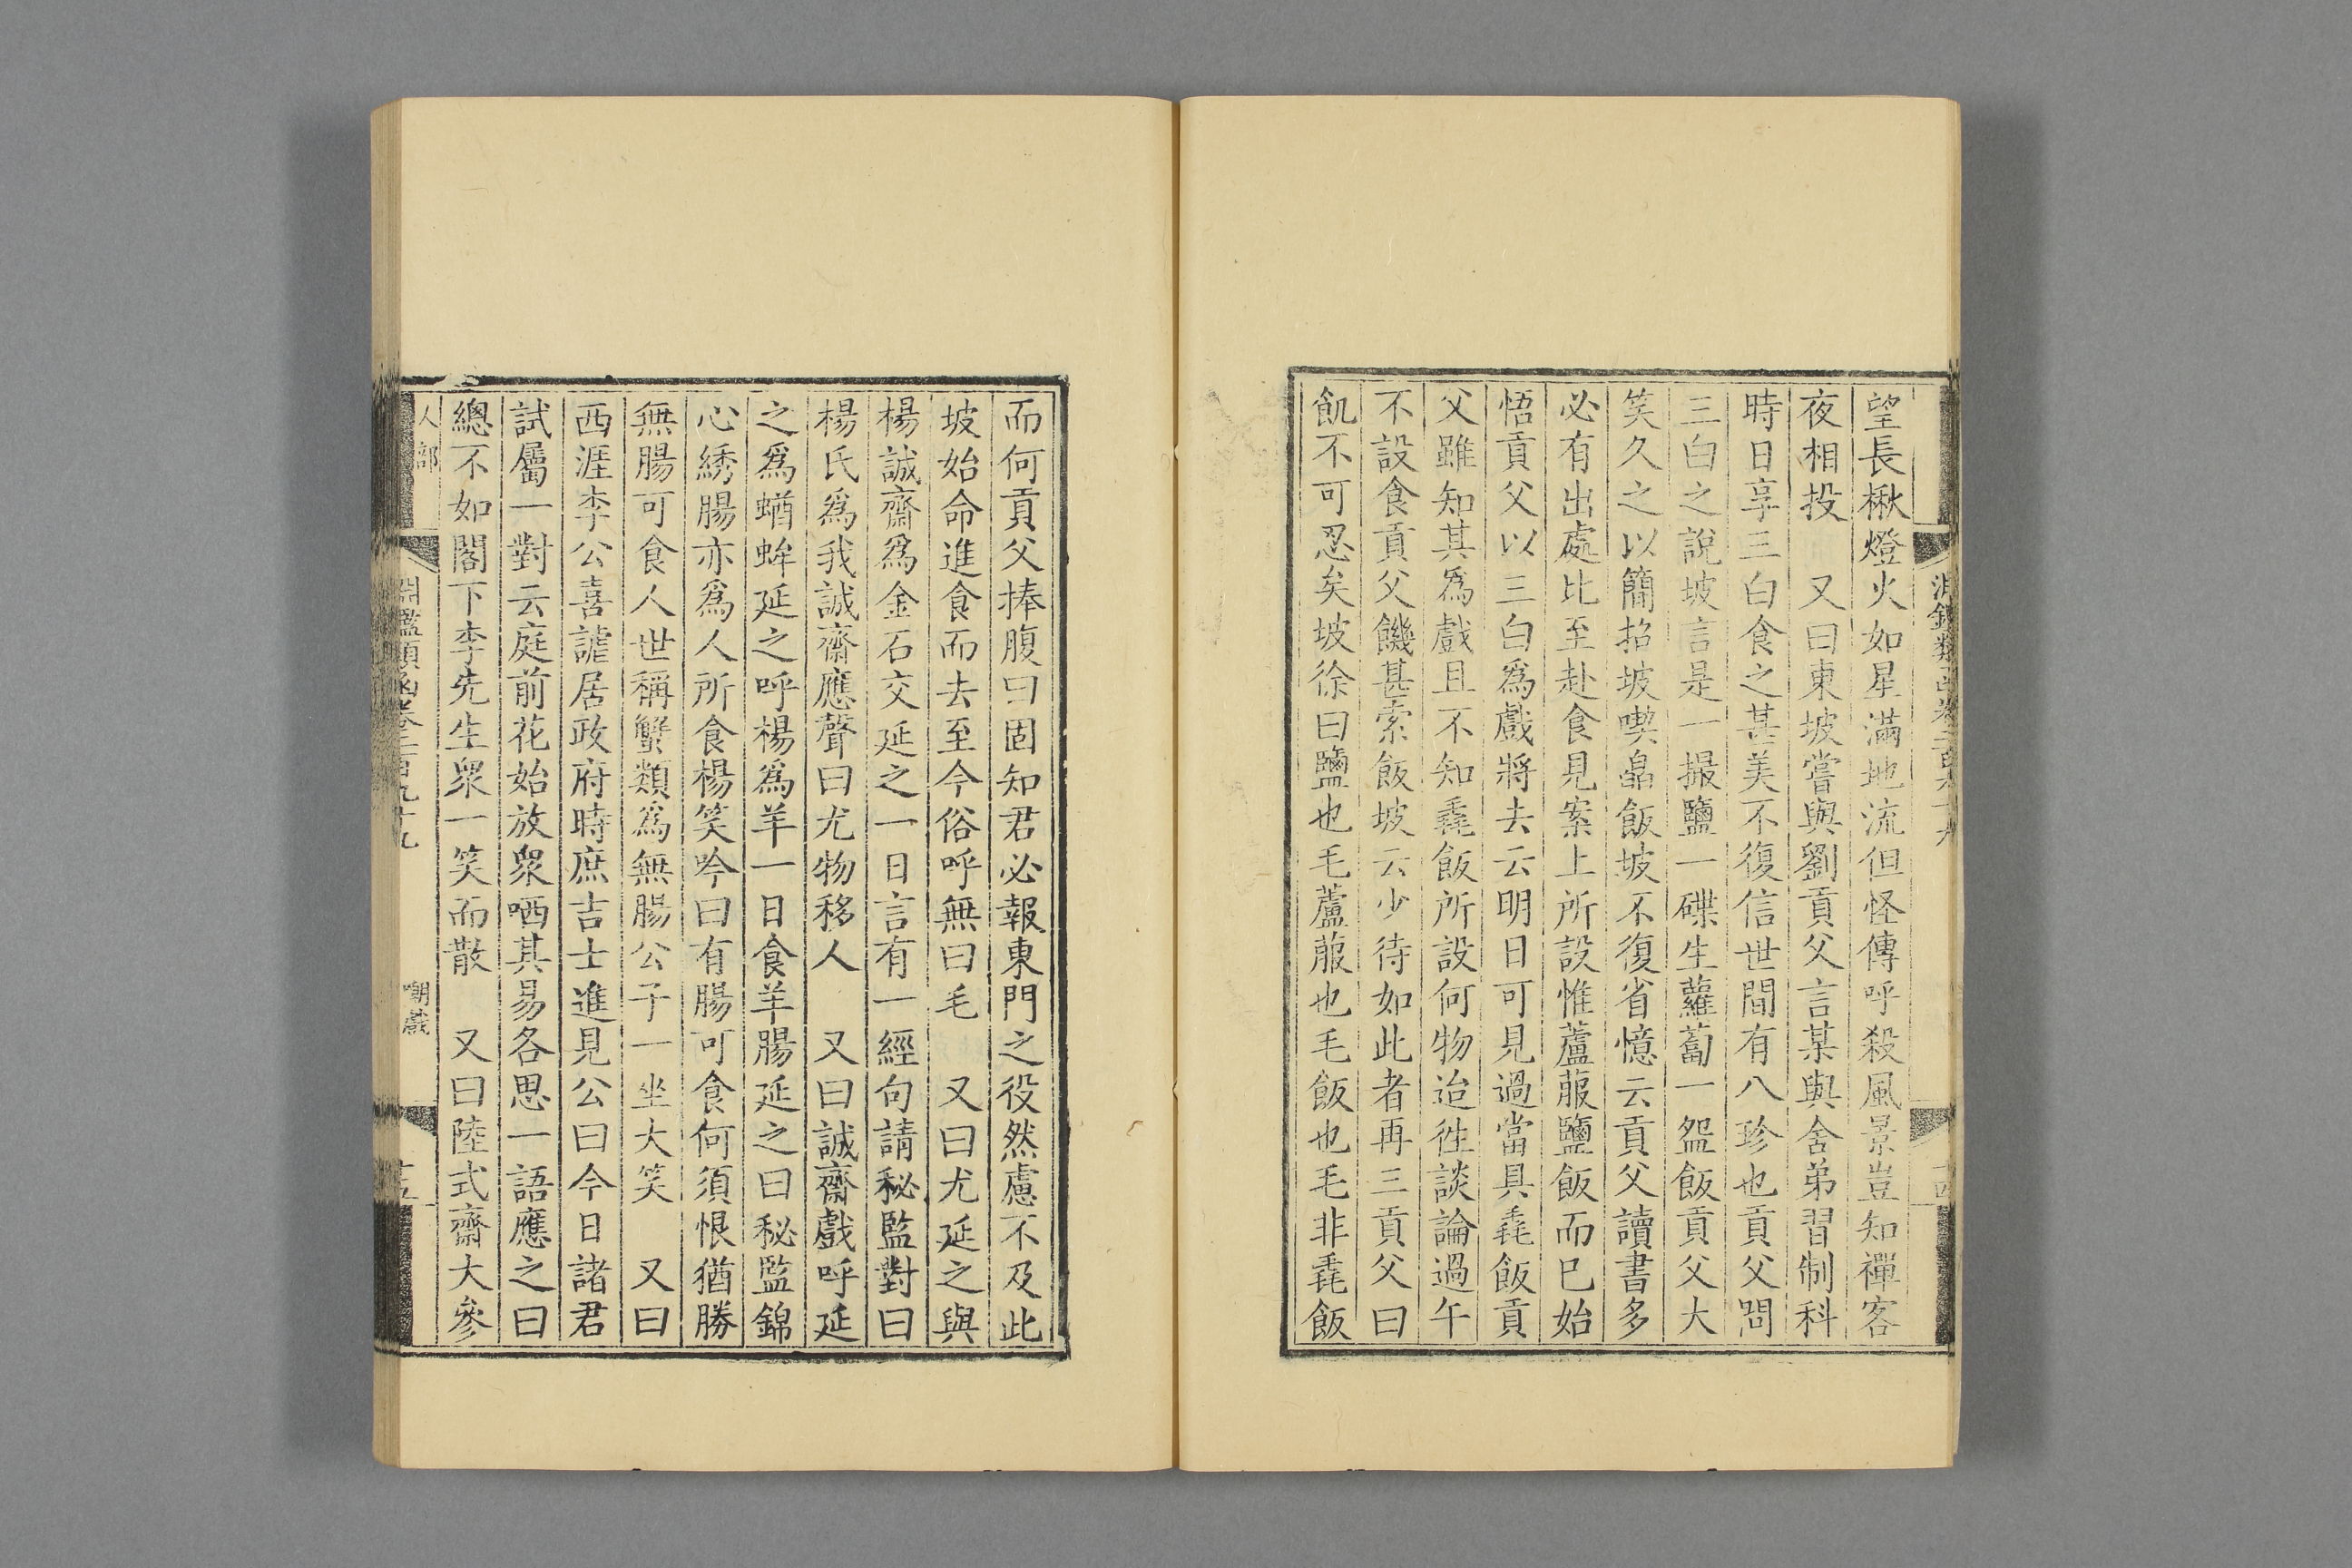 望長楸燈火如星滿地流但怪傳呼殺風景豈知禪客
夜相投　又曰東坡嘗與劉貢父言某與舍弟習制科
時日享三白食之甚美不復信世間有八珍也貢父問
三白之說坡言是一撮鹽一碟生蘿蔔一盌飯貢父大
笑久之以簡招坡喫皛飯坡不復省憶云貢父讀書多
必有出處比至赴食見案上所設惟蘆菔鹽飯而已始
悟貢父以三白爲戲將去云明日可見過當具毳飯貢
父雖知其爲戲且不知毳飯所設何物迨徃談論過午
不設食貢父饑甚索飯坡云少待如此者再三貢父曰
飢不可忍矣坡徐曰鹽也毛蘆菔也毛飯也毛非毳飯
而何貢父捧腹曰固知君必報東門之役然慮不及此
坡始命進食而去至今俗呼無曰毛　又曰尤延之與
楊誠齋爲金石交延之一日言有一經句請秘監對曰
楊氏爲我誠齋應聲曰尤物移人　又曰誠齋戲呼延
之爲蝤蛑延之呼楊爲羊一日食羊腸延之曰秘監錦
心綉腸亦爲人所食楊笑吟曰有腸可食何須恨猶勝
無腸可食人世稱蟹類爲無腸公子一坐大笑　又曰
西涯李公喜謔居政府時庶吉士進見公曰今日諸君
試屬一對云庭前花始放衆哂其易各思一語應之曰
總不如閣下李先生衆一笑而散　又曰陸式齋大參
人部
淵鑑類函卷二百九十九
嘲戲
十五